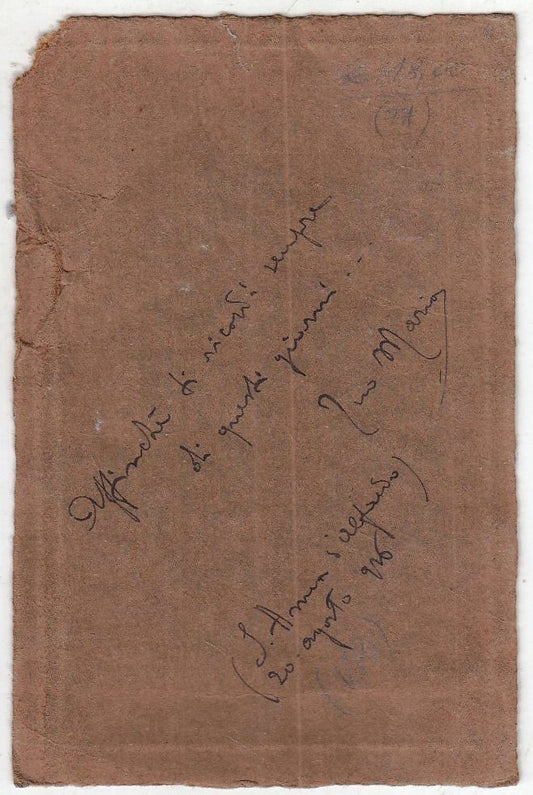 Affinchè ti ricordi sempre
di questi giorni...
Mario
(S. Anna d'Alfaedo)
20 agosto 926